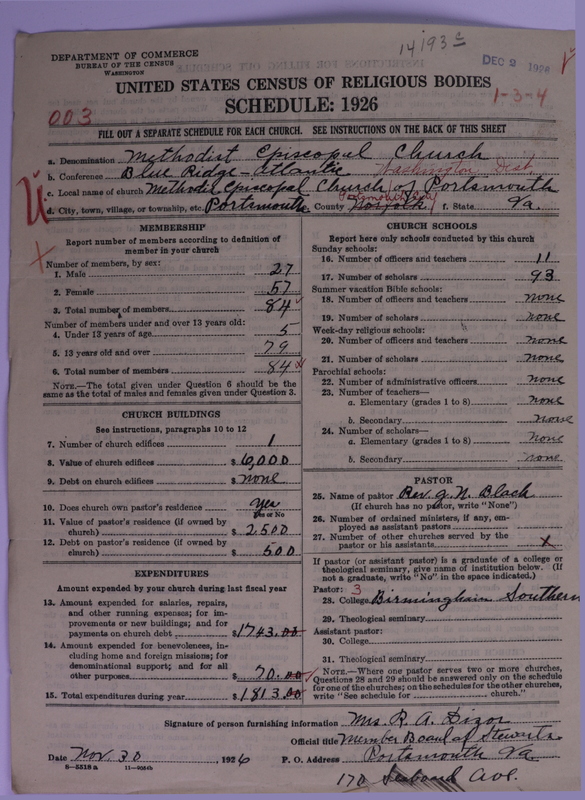 14193c
DEPARTMENT OF COMMERCE
BUREAU OF THE CENSUS
WASHINGTON
DEC 2 1926
UNITED STATES CENSUS OF RELIGIOUS BODIES
SCHEDULE: 1926
1-3-4
003
FILL OUT A SEPARATE SCHEDULE FOR EACH CHURCH. SEE INSTRUCTIONS ON THE BACK OF THIS SHEET
a. Denomination Methodist Episcopal Church
b. Conference Blue Ridge-Atlantic Washington Dist.
c. Local name of church Methodist Episcopal Church of Portsmouth
d. City, town, village, or township, etc. Portsmouth County Norfolk f. State Va.
MEMBERSHIP
Report number of members according to definition of
member in your church
Number of members, by sex:
1. Male 27
2. Female 57
3. Total number of members 84
Number of members under and over 13 years old:
4. Under 13 years of age 5
5. 13 years old and over 79
6. Total number of members 84
NOTE.—The total given under Question 6 should be
same as the total of males and females given under Question 3.
CHURCH BUILDINGS
See instructions, paragraphs 10 to 12
7. Number of church edifices 1
8. Value of church edifices $ 6,000
9. Debt on church edifices $ none
10. Does church own pastor's residence Yes
Yes or No
11. Value of pastor's residence (if owned by
church) $ 2500
12. Debt on pastor's residence (if owned by
church) $ 500
EXPENDITURES
Amount expended by your church during last fiscal year
13. Amount expended for salaries, repairs,
and other running expenses; for im-
provements or new buildings; and for
payments on church debt $ 1743.00
14. Amount expended for benevolences, in-
cluding home and foreign missions; for
denominational support; and for all
other purposes $ 70.00
15. Total expenditures during year $ 1813.00
CHURCH SCHOOLS
Report here only schools conducted by this church
Sunday schools:
16. Number of officers and teachers 11
17. Number of scholars 93
Summer vacation Bible schools:
18. Number of officers and teachers none
19. Number of scholars none
Week-day religious schools:
20. Number of officers and teachers none
21. Number of scholars none
Parochial schools:
22. Number of administrative officers none
23. Number of teachers—
a. Elementary (grades 1 to 8) none
b. Secondary none
24. Number of scholars—
a. Elementary (grades 1 to 8) none
b. Secondary none
PASTOR
25. Name of pastor Rev. J. N. Black
(If church has no pastor, write "None")
26. Number of ordained ministers, if any, em-
ployed as assistant pastors
27. Number of other churches served by the
pastor or his assistants x
If pastor (or assistant pastor) is a graduate of a college or
theological seminary, give name of institution below. (If
not a graduate, write "No" in the space indicated.)
Pastor: 3
28. College Birmingham Southern
29. Theological seminary
Assistant pastor:
30. College
31. Theological seminary
NOTE.—Where one pastor serves two or more churches,
Questions 28 and 29 should be answered only on the schedule
for one of the churches; on the schedules for the other churches,
write "See schedule for church."
Signature of person furnishing information Mrs. R. A. Dixon
Official title Member Board of Stewarts
Date Nov. 30 1926 P. O. Address Portsmouth Va.
8-5518a 11-9054b
170 Seaboard Ave.